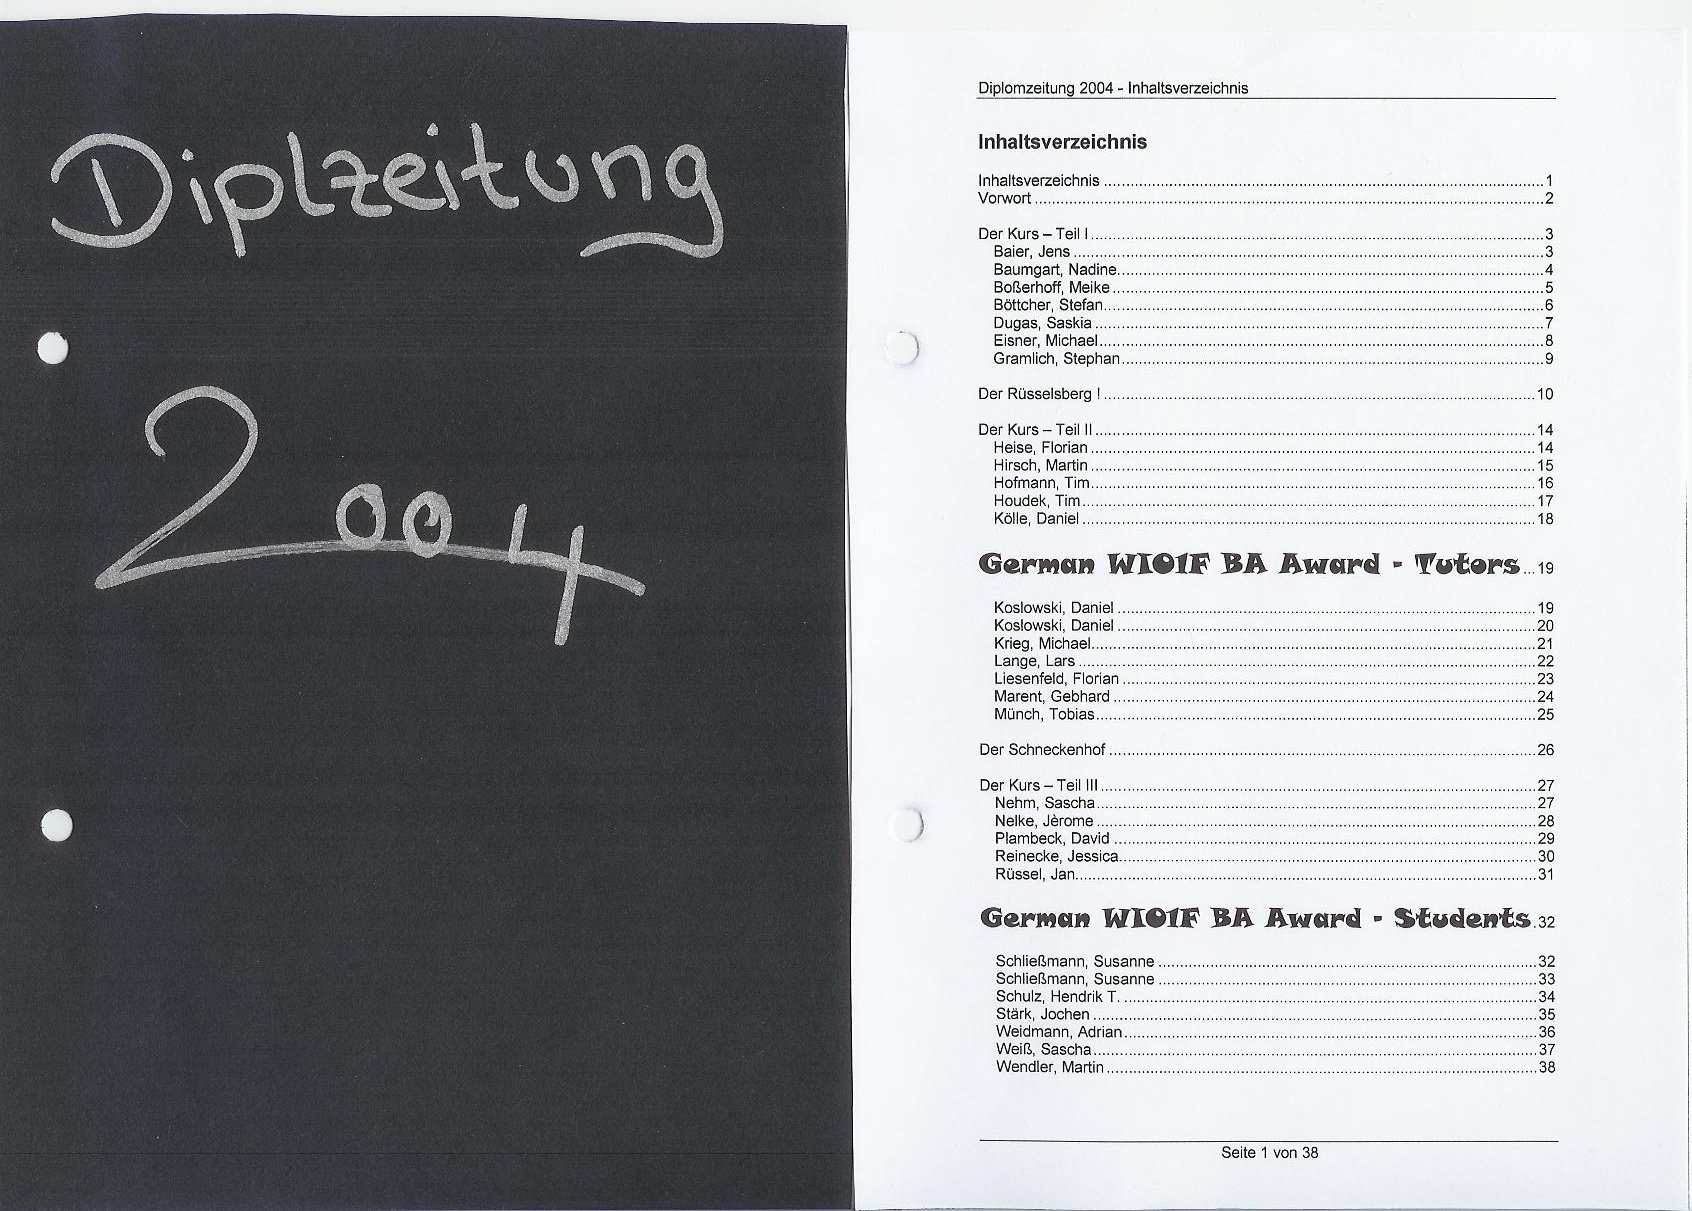 Diplzeitung
2004
Diplomzeitung 2004 - Inhaltsverzeichnis
Inhaltsverzeichnis
Inhaltsverzeichnis 1
Vorwort 2
Der Kurs – Teil I 3
Baier, Jens 3
Baumgart, Nadine 4
Boßerhoff, Meike 5
Böttcher, Stefan 6
Dugas, Saskia 7
Eisner, Michael 8
Gramlich, Stephan 9
Der Rüsselsberg ! 10
Der Kurs – Teil II 14
Heise, Florian 14
Hirsch, Martin 15
Hofmann, Tim 16
Houdek, Tim 17
Kölle, Daniel 18
German WI01F BA Award - Tutors 19
Koslowski, Daniel 19
Koslowski, Daniel 20
Krieg, Michael 21
Lange, Lars 22
Liesenfeld, Florian 23
Marent, Gebhard 24
Münch, Tobias 25
Der Schneckenhof 26
Der Kurs – Teil III 27
Nehm, Sascha 27
Nelke, Jèrome 28
Plambeck, David 29
Reinecke, Jessica 30
Rüssel, Jan 31
German WI01F BA Award - Students 32
Schließmann, Susanne 32
Schließmann, Susanne 33
Schulz, Hendrik T. 34
Stärk, Jochen 35
Weidmann, Adrian 36
Weiß, Sascha 37
Wendler, Martin 38
Seite 1 von 38